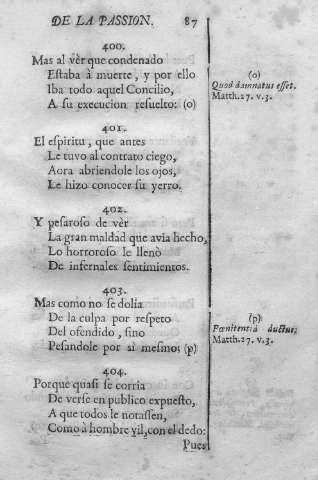 DE LA PASSION. 87
400.
Mas al vèr que condenado
Estaba à muerte, y por ello
Iba todo aquel Concilio,
A su execucion resuelto: (o)
(o)
Quod damnatus esset.
Matth.27. v.3.
401.
El espiritu, que antes
Le tuvo al contrato ciego,
Aora abriendole los ojos,
Le hizo conocer su yerro.
402.
Y pesaroso de vèr
La gran maldad que avia hecho,
Lo horroroso le llenò
De infernales sentimientos.
403.
Mas como no se dolia
De la culpa por respeto
Del ofendido, sino
Pesandole por sì mesmo; (p)
(p)
Pœnitentiâ ductus;
Matth.27. v.3.
404.
Porque quasi se corria
De verse en publico expuesto,
A que todos le notassen,
Como à hombre vil, con el dedo:
Pues